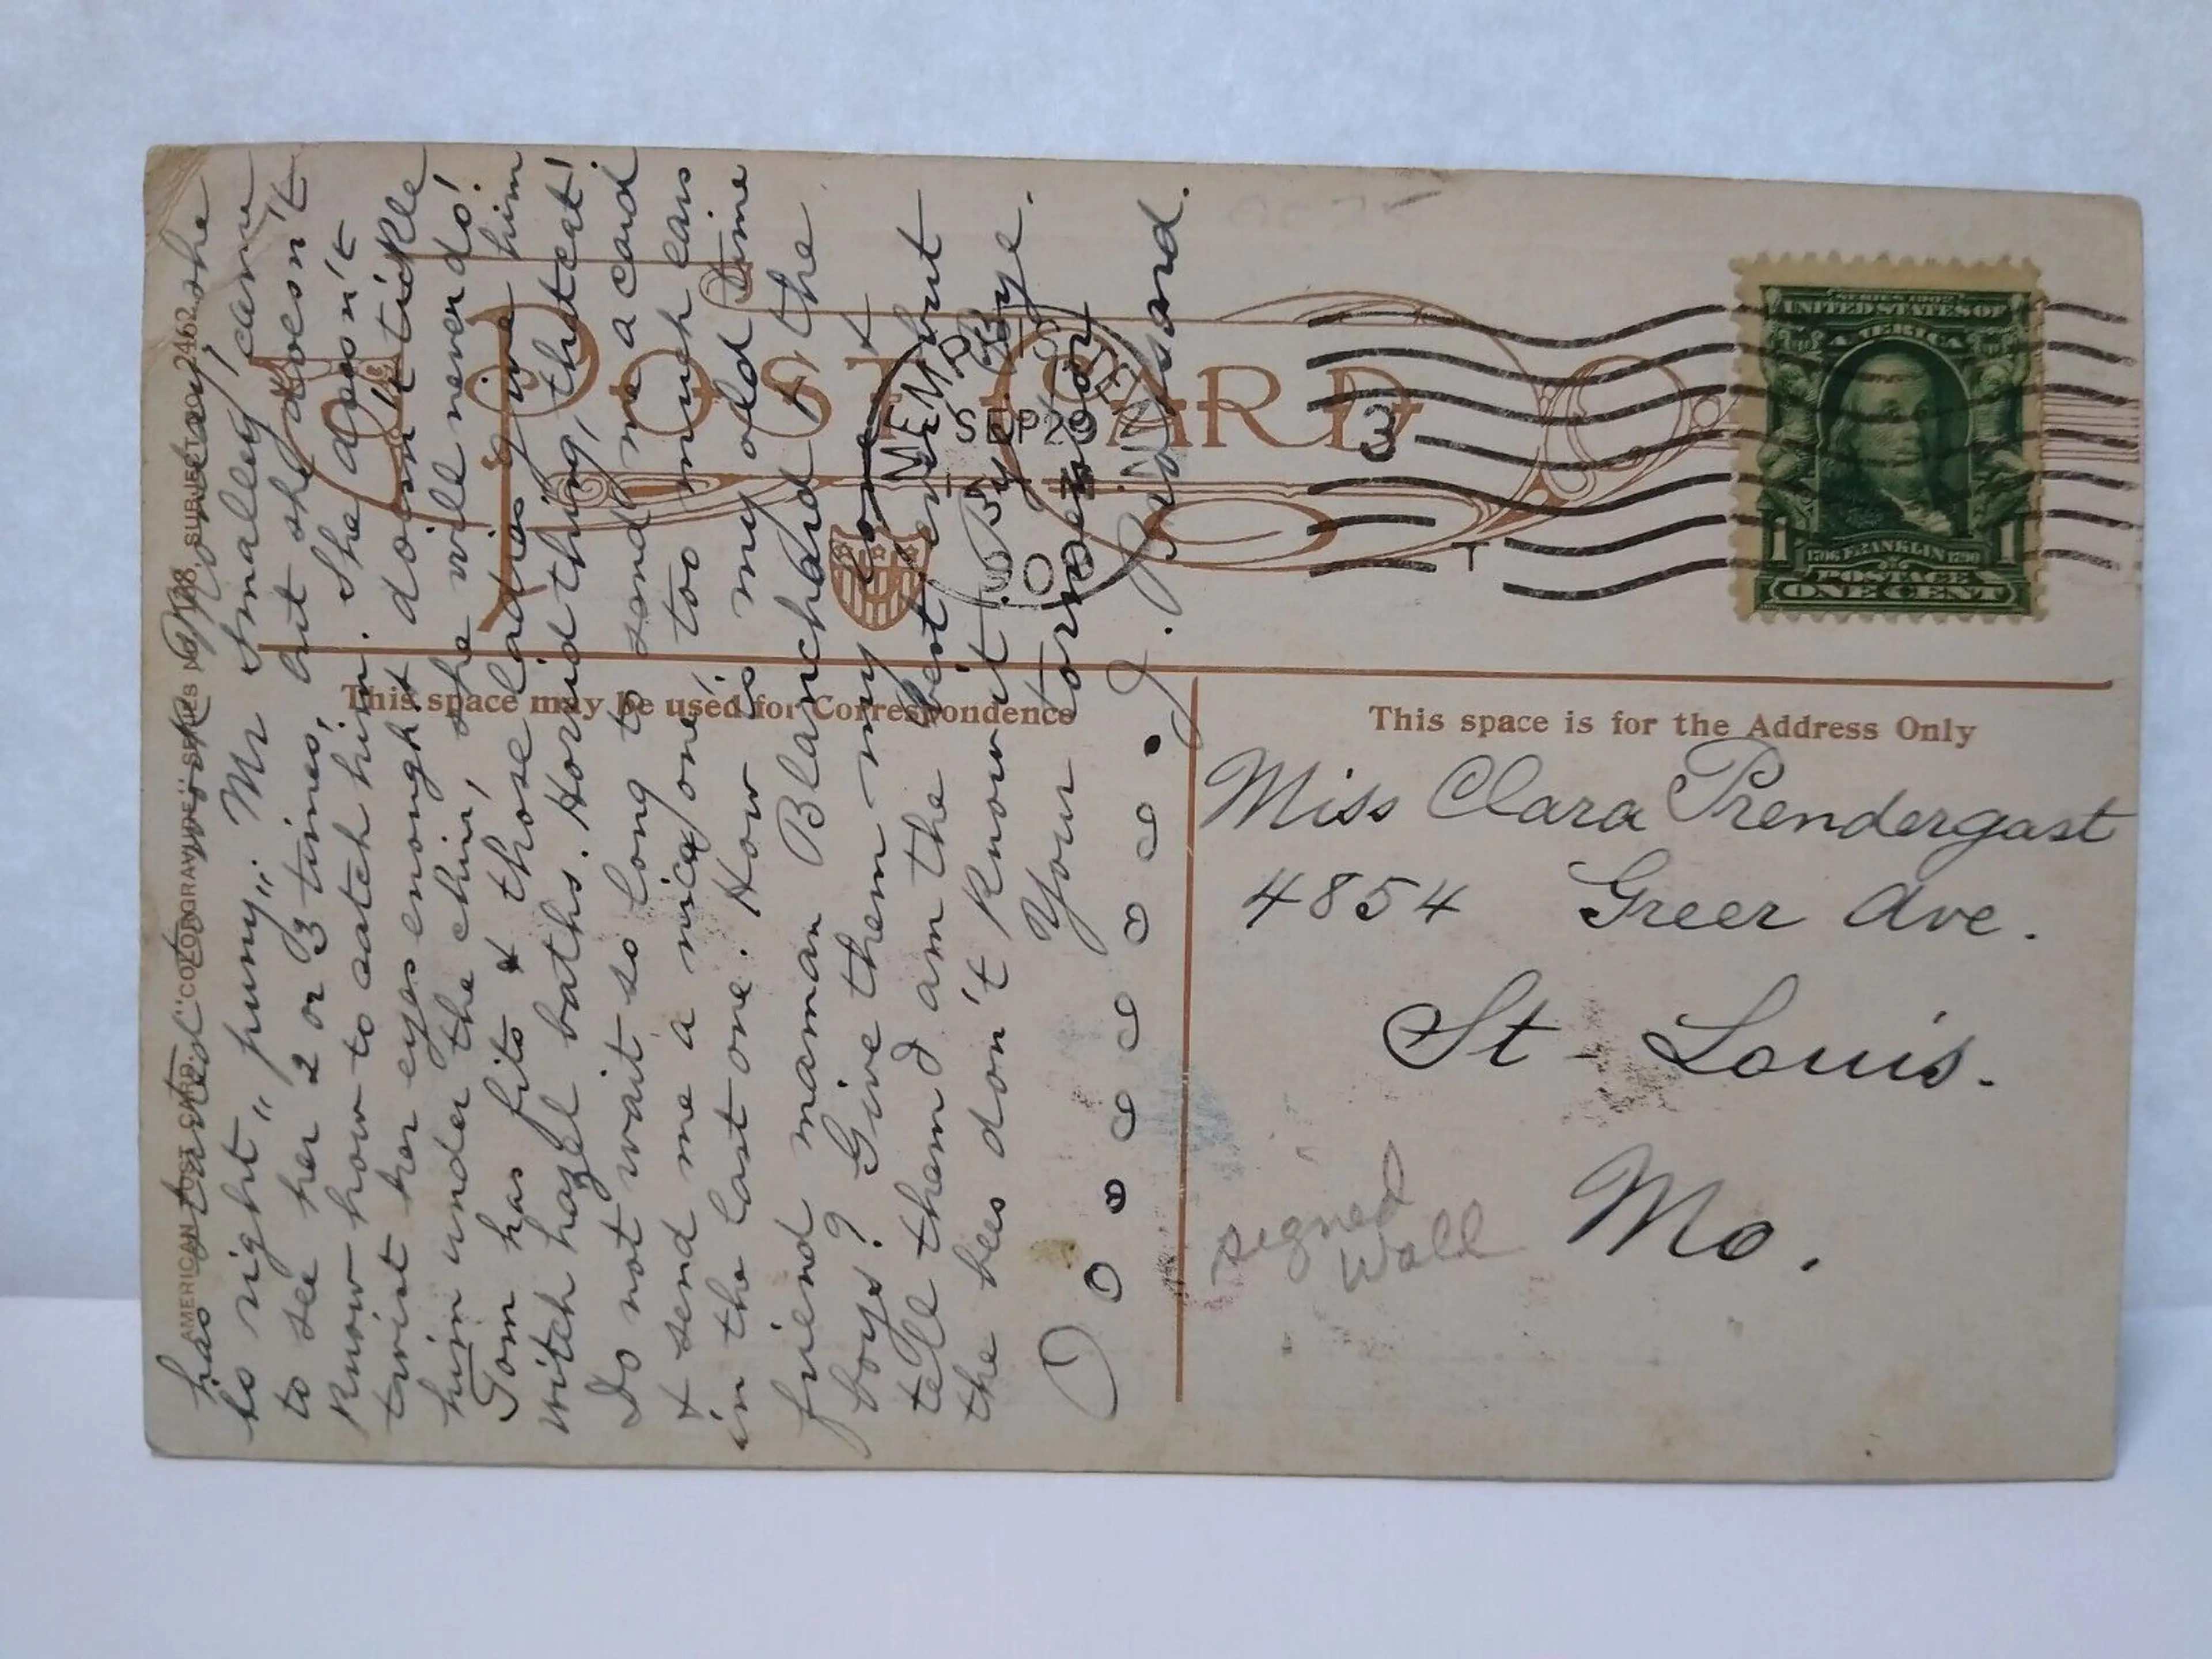 has started to work Monday, she
is right "puny". Mr Smalley came
to see her 2 or 3 times, but she doesn't
know how to catch him. She doesn't
twist her eyes enough & doesn't tickle
him under the chin, she will never do!
Tom has fits & those ladies give him
witch hazel baths. Horrid thing, that cat!
Do not wait so long to send me a card
& send me a nice one, too much ears
in the last one. How is my old time
friend maman Blanchard & the
boys? Give them my love &
tell them I am the best ever but
the bees don't know it. By By Bye.
Your tormentor
J. J.
AMERICAN POST CARD. "COLORGRAVURE" SERIES No. 188 SUBJECT No. 2462
POST CARD
MEMPHIS
SEP 29
TENN.
3
T
SERIES 1902
UNITED STATES OF
AMERICA
1 1706 FRANKLIN 1790 1
POSTAGE
ONE CENT
This space may be used for Correspondence
This space is for the Address Only
Miss Clara Prendergast
4854 Greer Ave.
St-Louis.
Mo.
signed
Wall